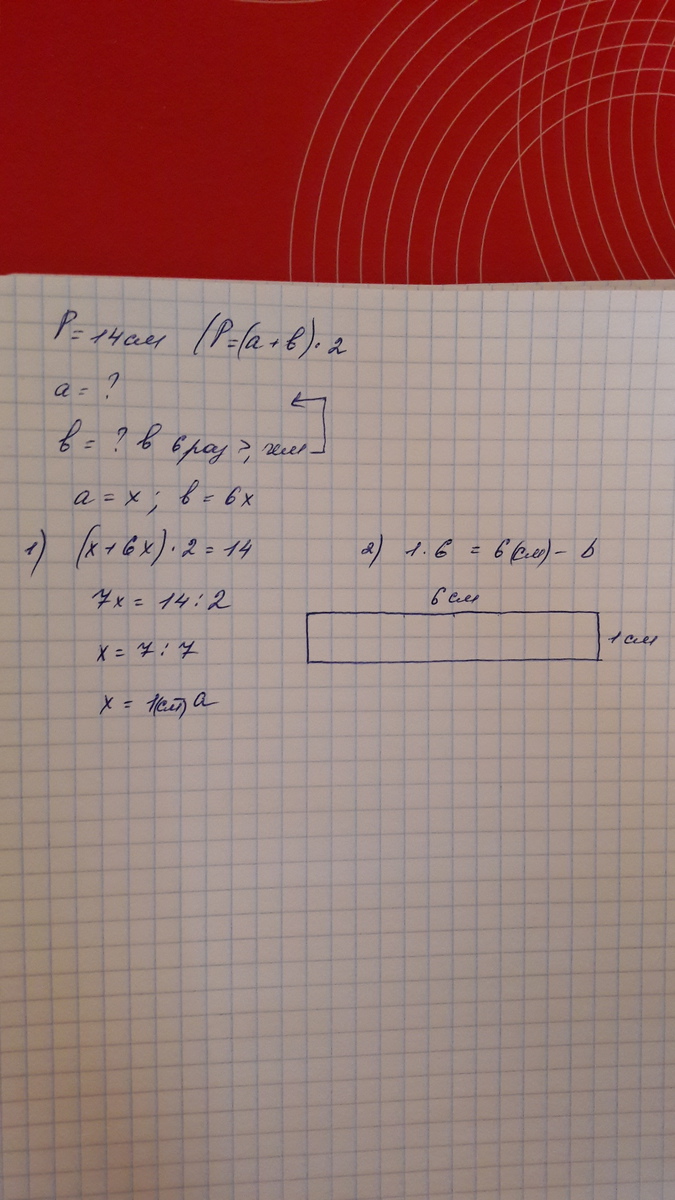 P = 14 см (P = (a + в) · 2
a = ?
в = ? в 6 раз >, чем
a = x ; в = 6x
1) (x + 6x) · 2 = 14
7x = 14 : 2
x = 7 : 7
x = 1(см) a
2) 1 · 6 = 6(см) – b
6 см
1 см